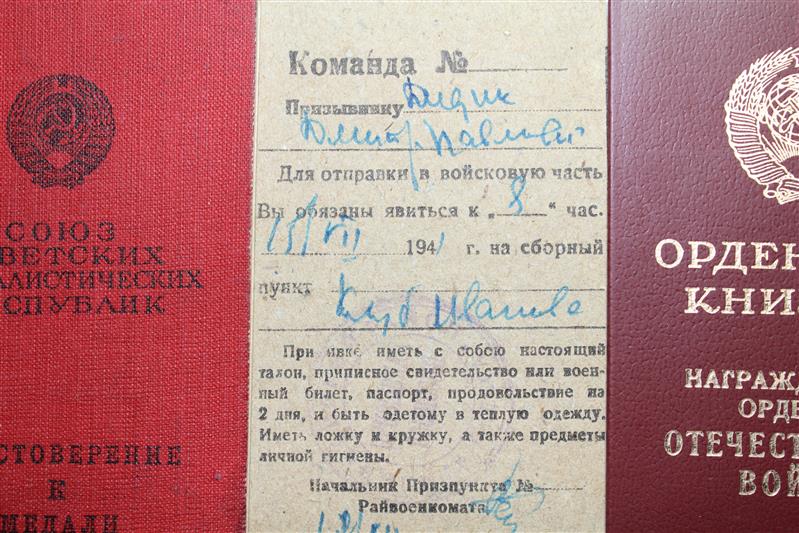 СОЮЗ
ОВЕТСКИХ
АЛИСТИЧЕСКИХ
СПУБЛИК
СТОВЕРЕНИЕ
К
МЕДАЛИ
Команда №
Призывнику Дидик
Дмитр. Павлович
Для отправки в войсковую часть
Вы обязаны явиться к „ 8 “ час.
15/VII 1941 г. на сборный
пункт
Клуб Иванова
При явке иметь с собою настоящий
талон, приписное свидетельство или воен-
ный билет, паспорт, продовольствие на
2 дня, и быть одетому в теплую одежду.
Иметь ложку и кружку, а также предметы
личной гигиены.
Начальник Призпункта №
Райвоенкомата
ОРДЕН
КНИ
НАГРАЖД
ОРДЕ
ОТЕЧЕСТ
ВОЙ